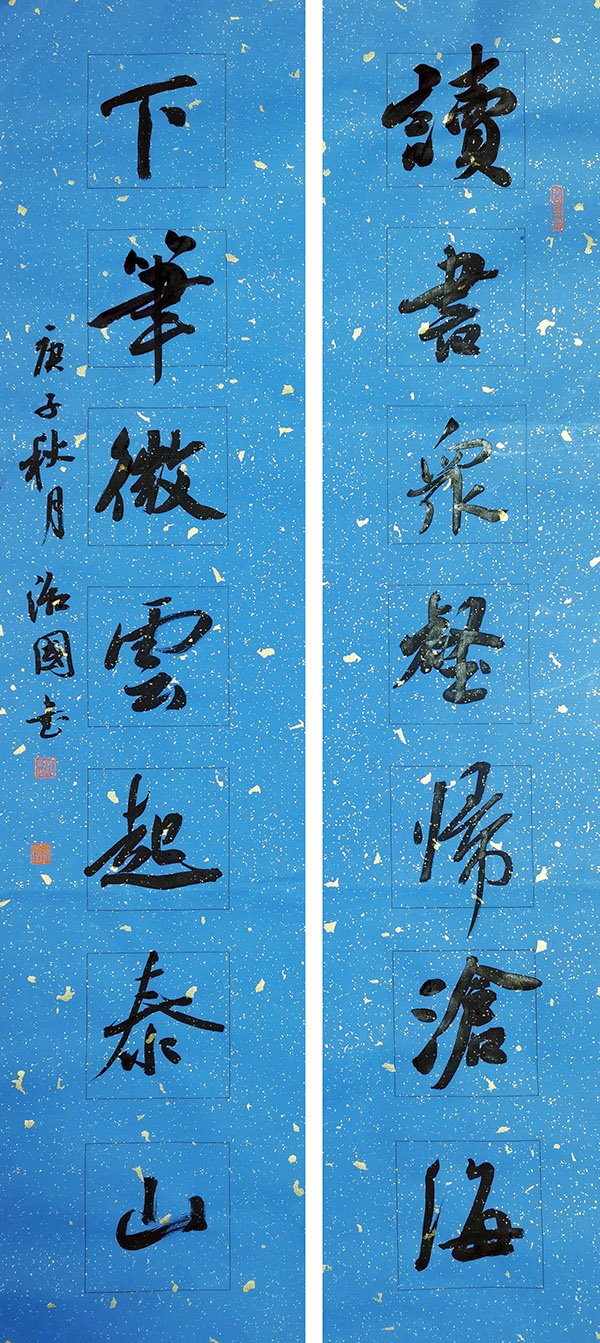 讀書眾壑歸滄海
下筆微雲起泰山
庚子秋月 治國書